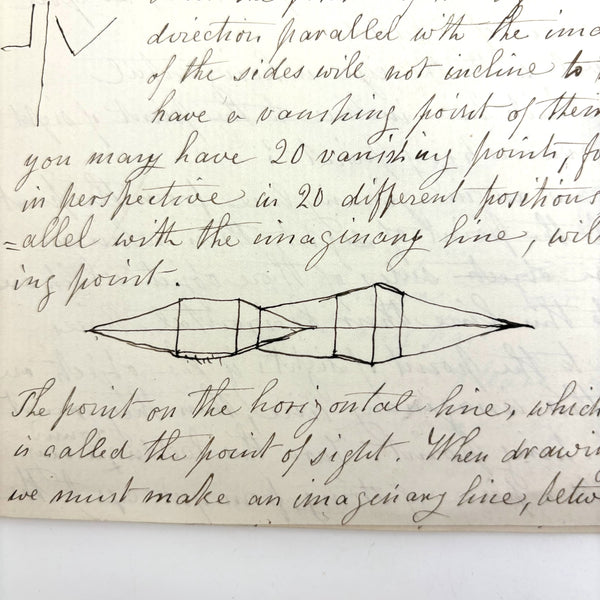 direction parallel with the ima
of the sides will not incline to
have a vanishing point of their
you many have 20 vanishing points, fo
in perspective in 20 different positions
=allel with the imaginary line, will
ing point.
The point on the horizontal line, which
is called the point of sight. When drawin
we must make an imaginary line, betw